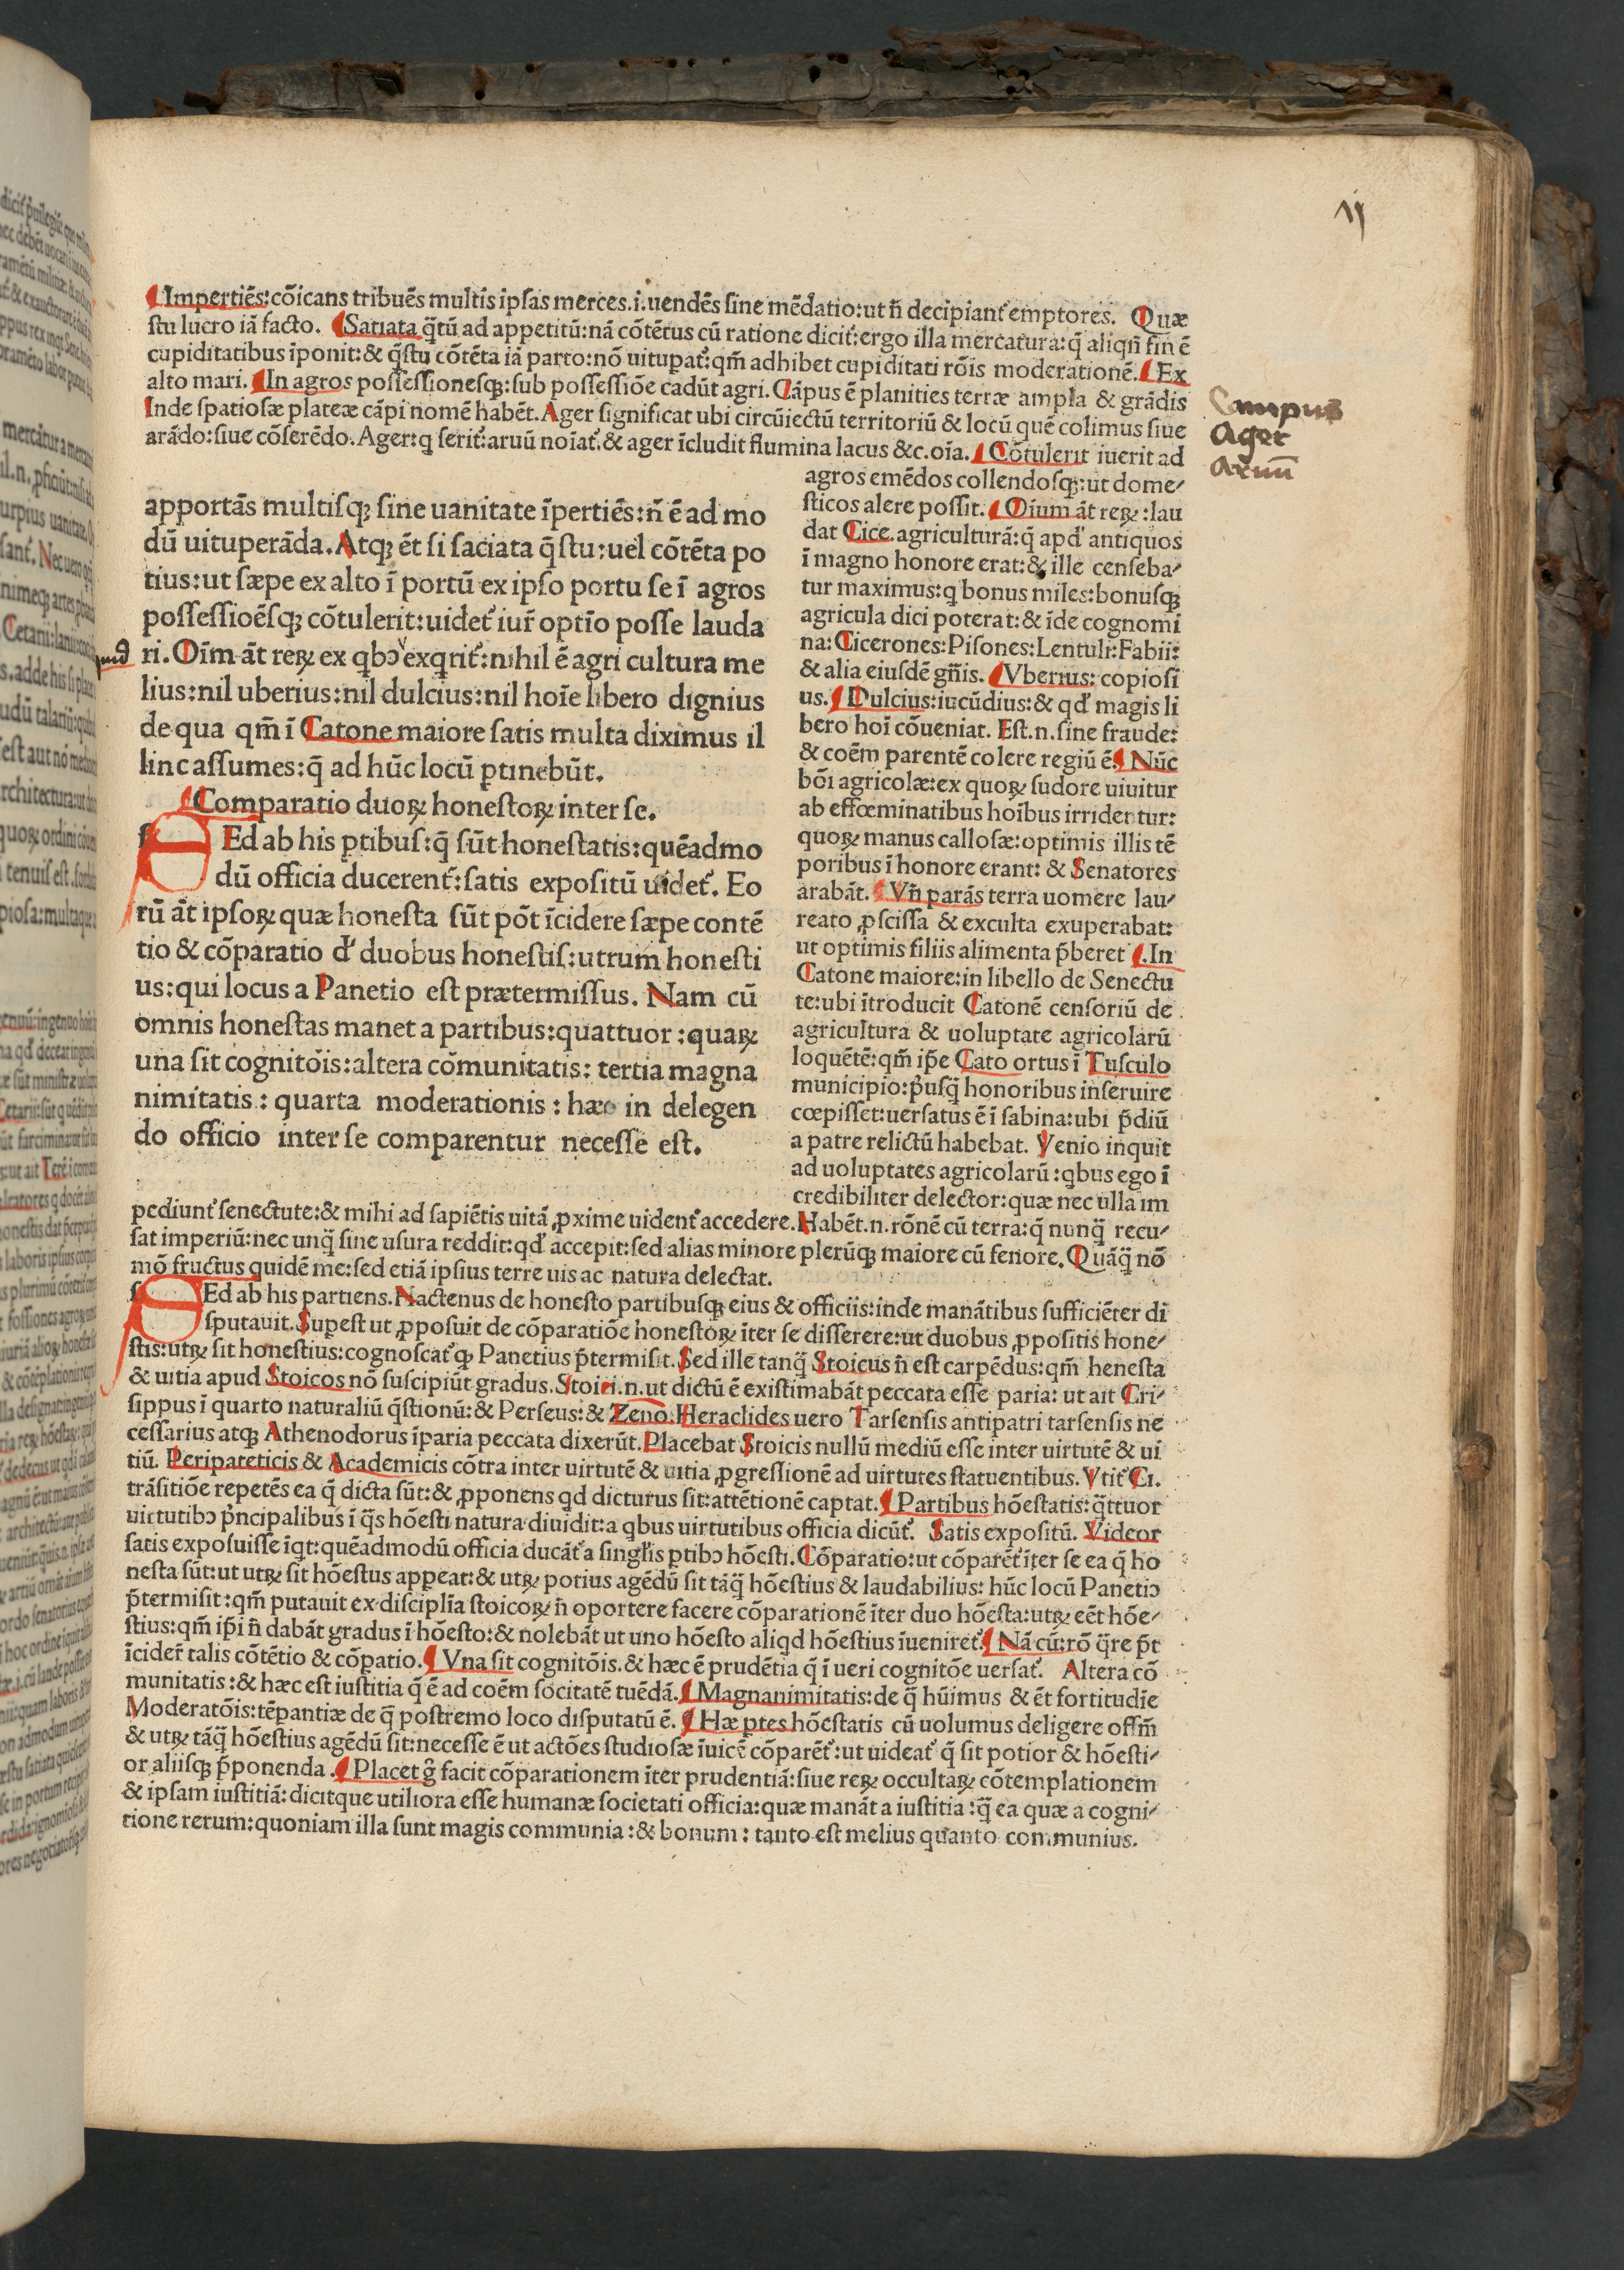 ¶Impertiēs:cōicans tribuēs multis ipsas merces.i.uendēs sine mēdatio:ut n̄ decipiant̃ emptores. Quæ
stu lucro iā facto. ¶Satiata q̄tū ad appetitū:nā cōtētus cū ratione dicit̃:ergo illa mercatura:q̄ aliqn̄ finē ē
cupiditatibus īponit:& q̄stu cōtēta iā parto:nō uitupat̃:qm̄ adhibet cupiditati rōis moderationē.¶Ex
alto mari.¶In agros possessionesqꝫ:sub possessiōe cadūt agri.Cāpus ē planities terræ ampla & grādis
Inde spatiosæ plateæ cāpi nomē habēt.Ager significat ubi circūiectū territoriū & locū quē colimus siue
arādo:siue cōserēdo.Ager:q serit̃:aruū noīat̃.& ager īcludit flumina lacus &c.oīa.¶Cōtulerit iuerit ad
agros emēdos collendosqꝫ:ut dome⸗
sticos alere possit.¶Oīum āt reꝝ:lau
dat Cice.agriculturā:q̄ apd̕ antiquos
ī magno honore erat:& ille censeba⸗
tur maximus:q bonus miles:bonusqꝫ
agricula dici poterat:& īde cognomi
na:Cicerones:Pisones:Lentuli:Fabii:
& alia eiusdē gn̄is.¶Vberius:copiosi
us.¶Dulcius:iucūdius:& qd̕ magis li
bero hoī cōueniat. Est.n.sine fraude:
& coēm parentē colere regiū ē.¶Nūc
bōi agricolæ:ex quoꝝ sudore uiuitur
ab effœminatibus hoībus irridentur:
quoꝝ manus callosæ:optimis illis tē
poribus ī honore erant: & Senatores
arabāt.¶Vn̄ parās terra uomere lau⸗
reato ꝓscissa & exculta exuperabat:
ut optimis filiis alimenta p̄beret ¶.In
Catone maiore:in libello de Senectu
te:ubi ītroducit Catonē censoriū de
agricultura & uoluptate agricolarū
loquētē:qm̄ ip̄e Cato ortus ī Tusculo
municipio:p̄usq̄ honoribus inseruire
cœpisset:uersatus ē ī sabina:ubi p̄diū
a patre relictū habebat. Venio inquit
ad uoluptates agricolarū:qbus ego ī
credibiliter delector:quæ nec ulla im
apportās multisqꝫ sine uanitate īpertiēs:n̄ ē ad mo
dū uituperāda.Atqꝫ ēt si saciata q̄stu:uel cōtēta po
tius:ut sæpe ex alto ī portū ex ipso portu se ī agros
possessioēsqꝫ cōtulerit:uidet̃ iur̄ optīo posse lauda
ri.Oīm āt reꝝ ex qbꝰ exqrit̃:nihil ē agri cultura me
lius:nil uberius:nil dulcius:nil hoīe libero dignius
de qua qm̄ ī Catone maiore satis multa diximus il
linc assumes:q̄ ad hūc locū ptinebūt.
¶Comparatio duoꝝ honestoꝝ inter se.
SEd ab his ptibus:q̄ sūt honestatis:quēadmo
dū officia ducerent̃:satis expositū uidet̃. Eo
rū āt ipsoꝝ quæ honesta sūt pōt īcidere sæpe contē
tio & cōparatio d̕ duobus honestis:utrum honesti
us:qui locus a Panetio est prætermissus. Nam cū
omnis honestas manet a partibus:quattuor:quaꝝ
una sit cognitōis:altera cōmunitatis: tertia magna
nimitatis: quarta moderationis: hæc in delegen
do officio inter se comparentur necesse est.
pediunt̃ senectute:& mihi ad sapiētis uitā ꝓxime uident̃ accedere.Habēt.n.rōnē cū terra:q̄ nunq̄ recu⸗
sat imperiū:nec unq̄ sine usura reddit:qd̕ accepit:sed alias minore plerūqꝫ maiore cū fenore.Quāq̄ nō
mō fructus quidē me:sed etiā ipsius terre uis ac natura delectat.
SEd ab his partiens.Nactenus de honesto partibusqꝫ eius & officiis:inde manātibus sufficiēter di
sputauit.Supest ut ꝓposuit de cōparatiōe honestoꝝ īter se disserere:ut duobus ꝓpositis hone⸗
stis:utꝝ sit honestius:cognoscat̃ qꝫ Panetius p̄termisit.Sed ille tanq̄ Stoicus n̄ est carpēdus:qm̄ henesta
& uitia apud Stoicos nō suscipiūt gradus.Stoici.n.ut dictū ē existimabāt peccata esse paria: ut ait Cri⸗
sippus ī quarto naturaliū q̄stionū:& Perseus:& Zeno.Heraclides uero Tarsensis antipatri tarsensis ne
cessarius atqꝫ Athenodorus īparia peccata dixerūt.Placebat Stoicis nullū mediū esse inter uirtutē & ui
tiū. Peripateticis & Academicis cōtra inter uirtutē & uitia ꝓgressionē ad uirtutes statuentibus.Vtit̃ Ci.
trāsitiōe repetēs ea q̄ dicta sūt:& ꝓponens qd dicturus sit:attētionē captat.¶Partibus hōestatis:q̄ttuor
uirtutibꝰ p̄ncipalibus ī q̄s hōesti natura diuidit:a qbus uirtutibus officia dicūt̃. Satis expositū. Videor
satis exposuisse īqt:quēadmodū officia ducāt̃ a singl̄is ptibꝰ hōesti.Cōparatio:ut cōparēt̃ īter se ea q̄ ho
nesta sūt:ut utꝝ sit hōestus appeat:& utꝝ potius agēdū sit tāq̄ hōestius & laudabilius: hūc locū Panetiꝰ
p̄termisit:qm̄ putauit ex disciplīa stoicoꝝ n̄ oportere facere cōparationē īter duo hōesta:utꝝ eēt hōe⸗
stius:qm̄ ip̄i n̄ dabāt gradus ī hōesto:& nolebāt ut uno hōesto aliqd hōestius īueniret̃.¶Nā cū:rō q̄re p̄t
īcider̄ talis cōtētio & cōpatio.¶Vna sit cognitōis.& hæc ē prudētia q̄ ī ueri cognitōe uersat̃. Altera cō
munitatis:& hæc est iustitia q̄ ē ad coēm socitatē tuēdā.¶Magnanimitatis:de q̄ hūimus & ēt fortitudīe
Moderatōis:tēpantiæ de q̄ postremo loco disputatū ē.¶Hæ ptes hōestatis cū uolumus deligere offm̄
& utꝝ tāq̄ hōestius agēdū sit:necesse ē ut actōes studiosæ īuicē cōparēt̃:ut uideat̃ q̄ sit potior & hōesti⸗
or aliisqꝫ p̄ponenda.¶Placet g̊ facit cōparationem īter prudentiā:siue reꝝ occultaꝝ cōtemplationem
& ipsam iustitiā:dicitque utiliora esse humanæ societati officia:quæ manāt a iustitia:q̄ ea quæ a cogni⸗
tione rerum:quoniam illa sunt magis communia:& bonum: tanto est melius quanto communius.
Campus
Ager
Aruū